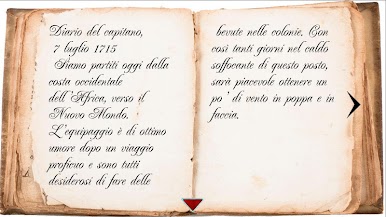 Diario del capitano,
7 luglio 1715
Siamo partiti oggi dalla
costa occidentale
dell'Africa, verso il
Nuovo Mondo.
L'equipaggio è di ottimo
umore dopo un viaggio
proficuo e sono tutti
desiderosi di fare delle
bevute nelle colonie. Con
così tanti giorni nel caldo
soffocante di questo posto,
sarà piacevole ottenere un
po' di vento in poppa e in
faccia.